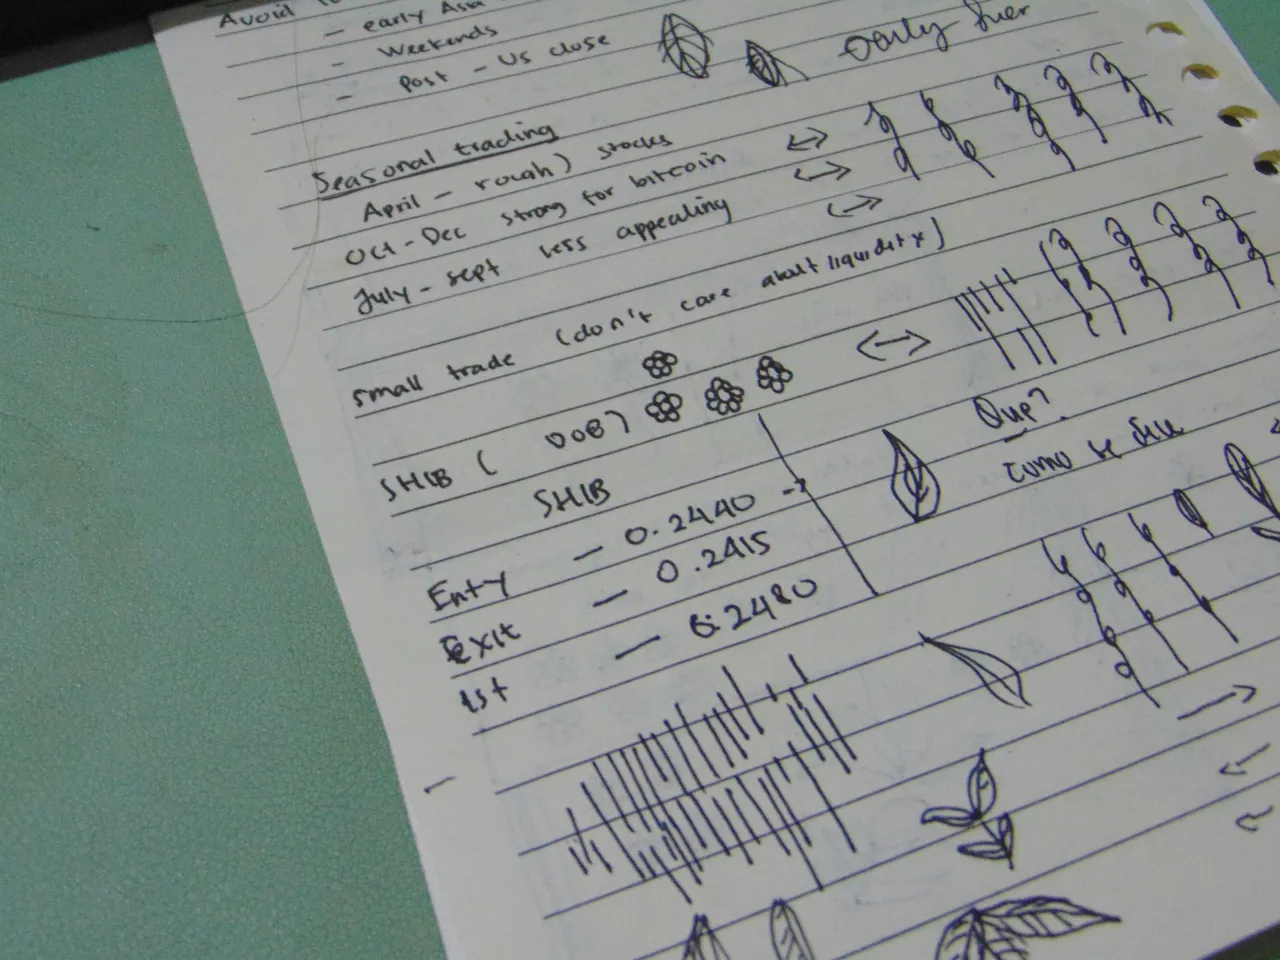 Avoid
- early Asia
- Weekends
- Post - US close
early
Seasonal trading
April - rough) stocks
Oct - Dec strong for bitcoin
July - sept less appealing
small trade (don't care about liquidity)
SHIB (
SHIB
Enty - 0.2440 ->
Exit - 0.2415
1st - 0.2480
Que?
como se